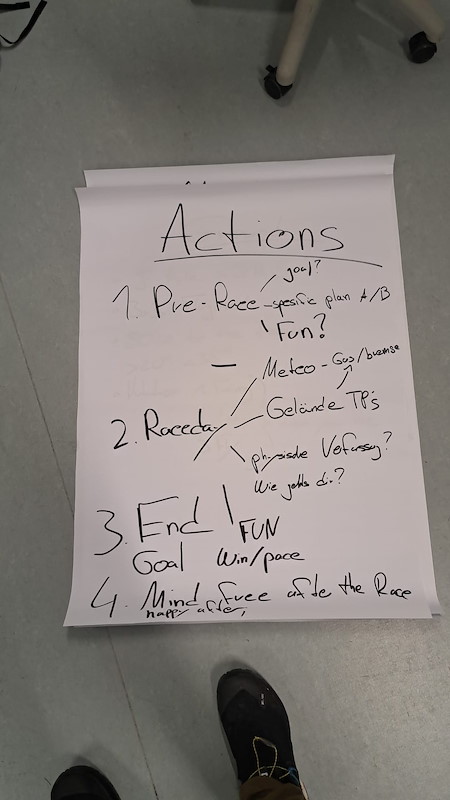 Actions
goal?
1. Pre-Race - spesific plan A/B
Fun?
Meteo - Gas/bremse
Gelände TP's
2. Raceday
physische Vofassug?
Wie gehts dir?
3. End
FUN
Goal Win/pace
4. Mind free after the Race
happy after,